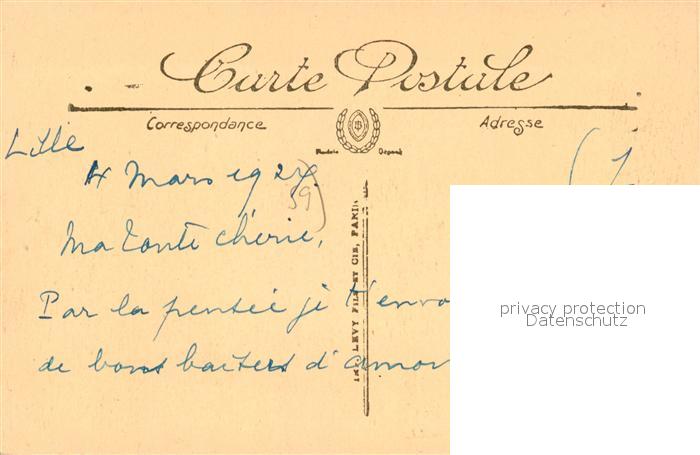 Carte Postale
Correspondance
Adresse
Modèle Déposé
Lille
4 Mars 1927
59
Ma tante chérie,
Par la pensée je t'envo
de bons baisers d'amour
IMP. LEVY FILS ET CIE, PARIS
privacy protection
Datenschutz